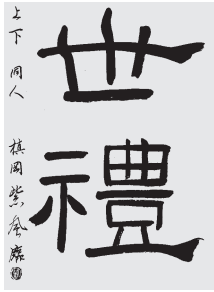 世禮
上下 同人
槙岡紫風臨